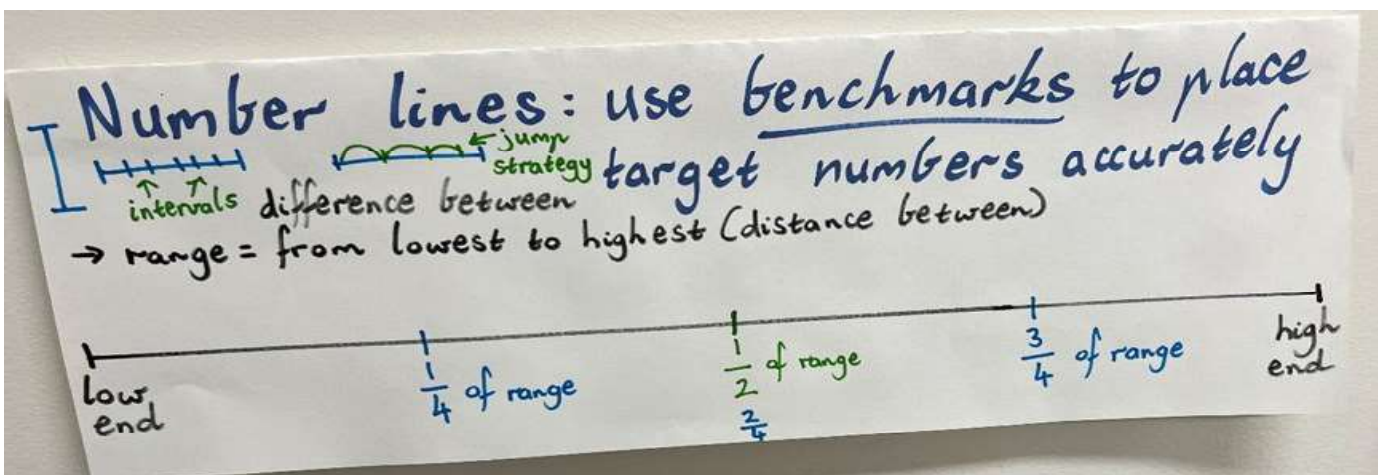 Number lines: use benchmarks to place
target numbers accurately
← jump
strategy
↑ ↑
intervals
difference between
→ range = from lowest to highest (distance between)
low end
1/4 of range
1/2 of range
2/4
3/4 of range
high end